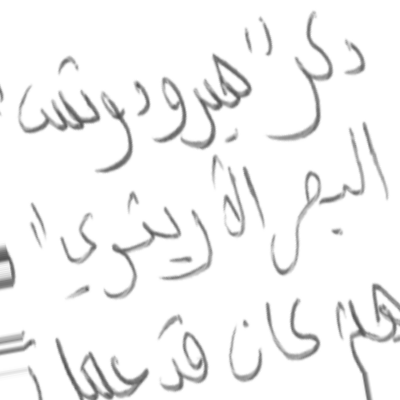 ذكر "هيرودوتس"
البحر الأريتري"
هم كان قد عليها